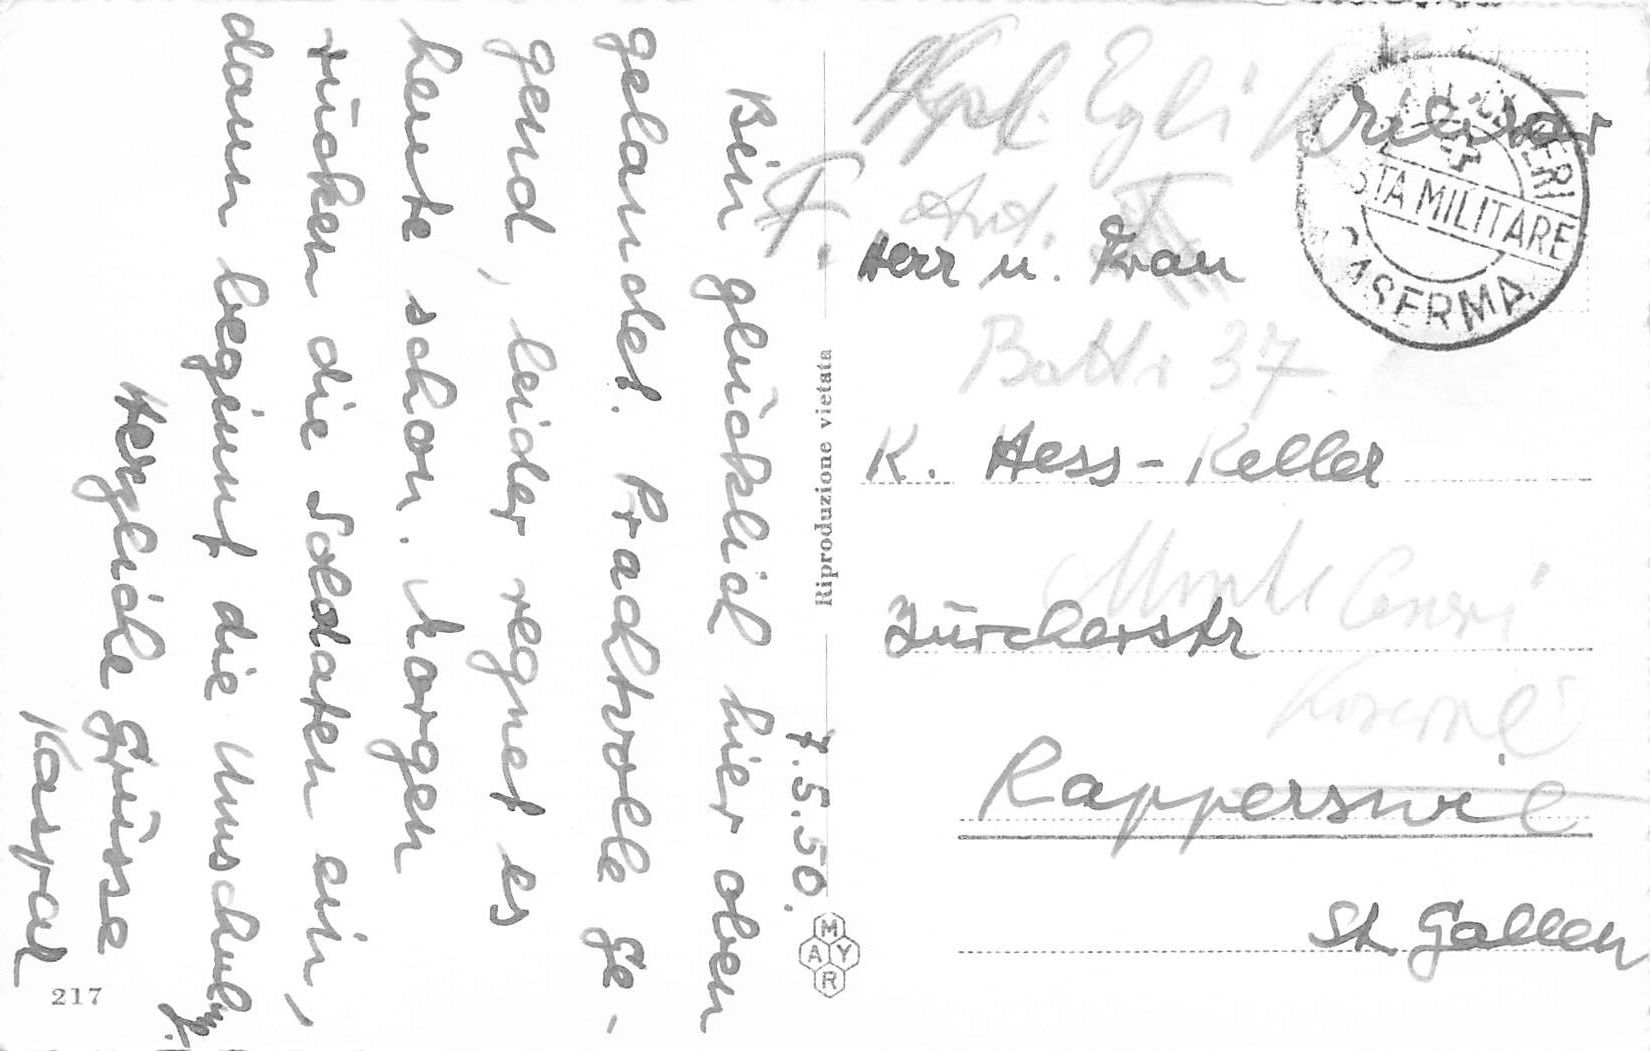 7.5.50.
Bin glücklich hier oben
gelandet. Prachtvolle Ge-
gend, leider regnet es
heute schon. Morgen
rücken die Soldaten ein,
dann beginnt die Umschulung.
Herzliche Grüsse
Kaspar
217
Riproduzione vietata
MAYR
Kpl. Egli
F. Art.
Herr u. Frau
Battr 37.
K. Hess-Keller
Monte Ceneri
Zürcherstr
Rapperswil
St Gallen
POSTA MILITARE
CASERMA